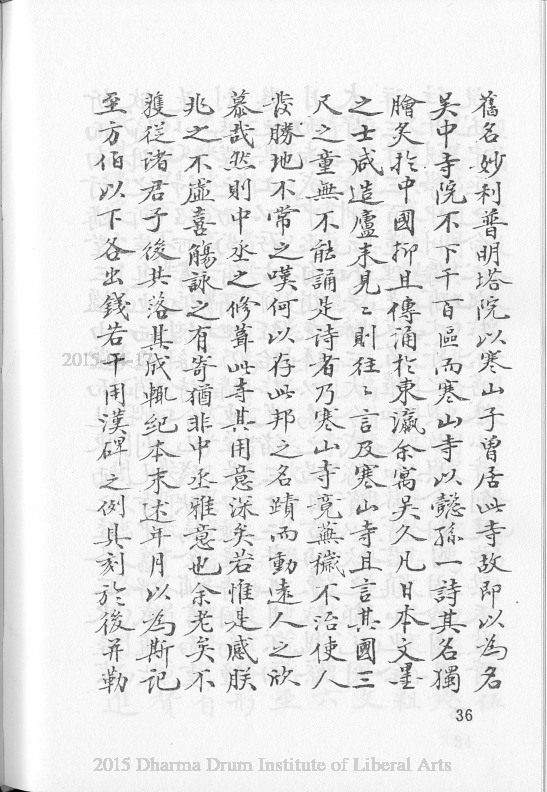 舊名妙利普明塔院以寒山子曾居此寺故即以為名
吳中寺院不下千百區而寒山寺以懿孫一詩其名獨
膾炙於中國抑且傳誦於東瀛余寓吳久凡日本文墨
之士咸造廬來見〻則往〻言及寒山寺且言其國三
尺之童無不能誦是詩者乃寒山寺竟蕪穢不治使人
發勝地不常之嘆何以存此邦之名蹟而動遠人之欣
慕哉然則中丞之修葺此寺其用意深矣若惟是感朕
兆之不虛喜觴詠之有寄猶非中丞雅意也余老矣不
獲從諸君子後共落其成輒紀本末述年月以為斯記
至方伯以下各出錢若干用漢碑之例具刻於後并勒
36
2015-0 -17
2015 Dharma Drum Institute of Liberal Arts